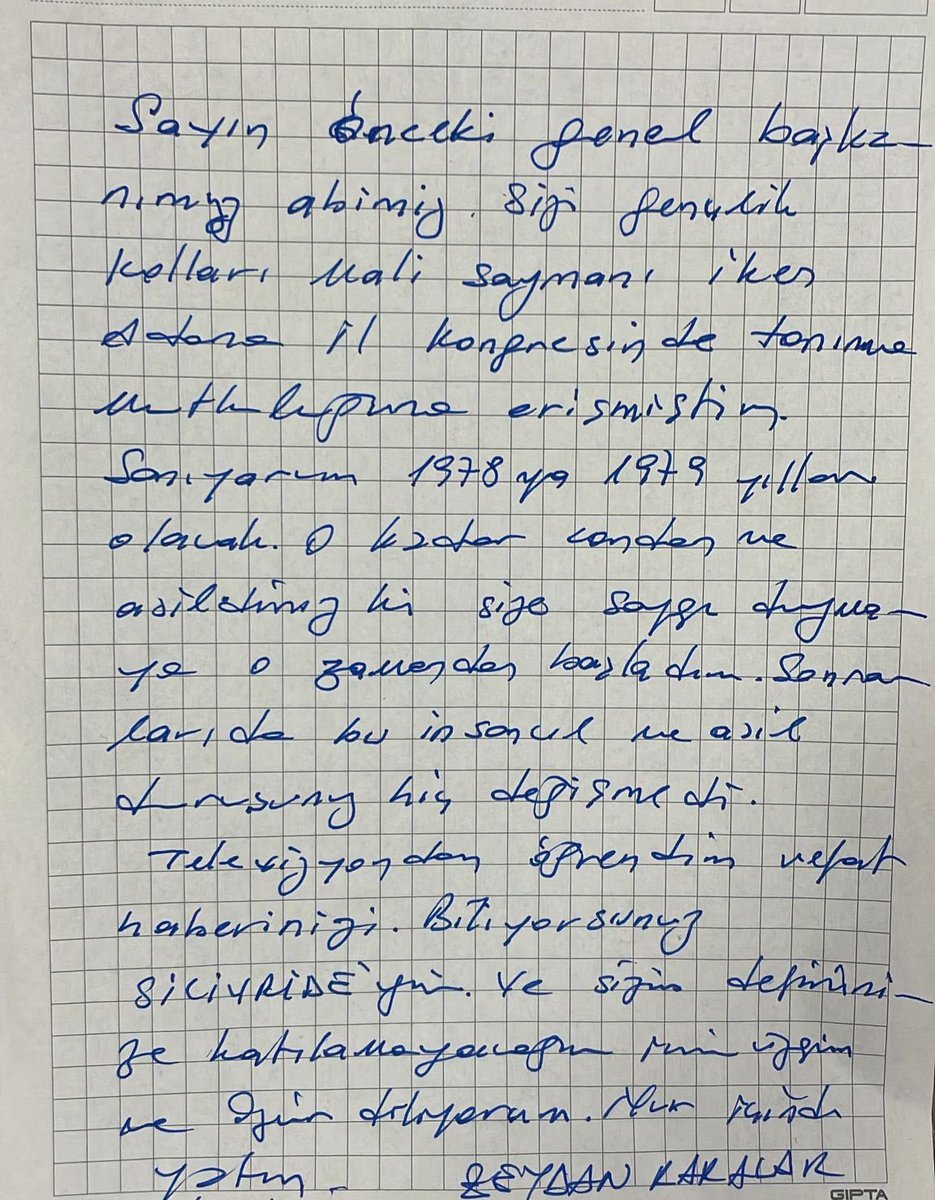 Sayın önceki genel başka-
nımız abimiz. Sizi gençlik
kolları Mali saymanı iken
Adana İl kongresinde tanıma
mutluluğuna erişmiştim.
Sanıyorum 1978 ya 1979 yılları
olacak. O kadar candan ve
asildiniz ki size saygı duyma-
ya o zamandan başladım. Sonra-
ları da bu insancıl ve asil
duruşunuz hiç değişmedi.
Televizyondan öğrendim vefat
haberinizi. Biliyorsunuz
SİLİVRİDE'yim. Ve sizin defnini-
ze katılamayacağım için üzgün
ve özür diliyorum. Nur içinde
yatın. ZEYDAN KARALAR
GIPTA